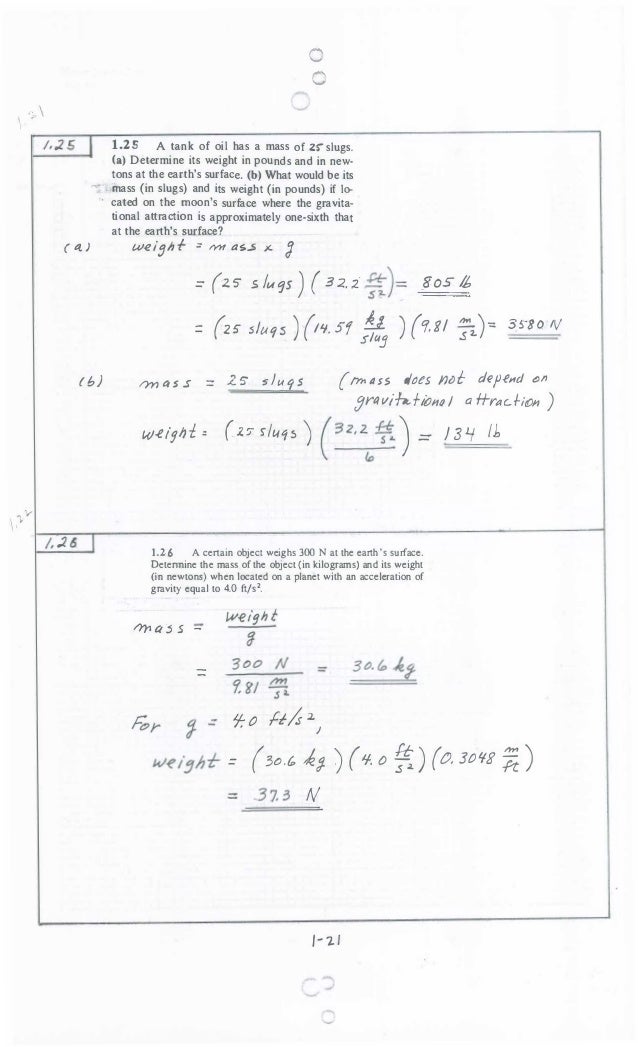 1.21
1.25
1.25 A tank of oil has a mass of 25 slugs.
(a) Determine its weight in pounds and in new-
tons at the earth's surface. (b) What would be its
mass (in slugs) and its weight (in pounds) if lo-
cated on the moon's surface where the gravita-
tional attraction is approximately one-sixth that
at the earth's surface?
(a) weight = mass x g
= (25 slugs) (32.2 ft/s²) = 805 lb
= (25 slugs) (14.59 kg/slug) (9.81 m/s²) = 3580 N
(b) mass = 25 slugs (mass does not depend on
gravitational attraction)
weight = (25 slugs) (32.2 ft/s² / 6) = 134 lb
1.22
1.26
1.26 A certain object weighs 300 N at the earth's surface.
Determine the mass of the object (in kilograms) and its weight
(in newtons) when located on a planet with an acceleration of
gravity equal to 4.0 ft/s².
mass = weight / g
= 300 N / 9.81 m/s² = 30.6 kg
For g = 4.0 ft/s²,
weight = (30.6 kg) (4.0 ft/s²) (0.3048 m/ft)
= 37.3 N
1-21